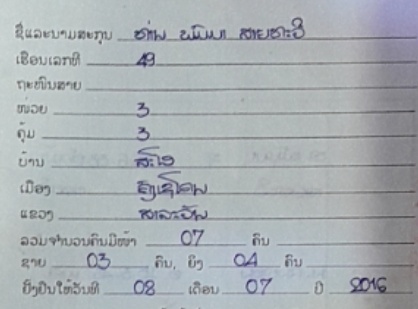 ຊື່ແລະນາມສະກຸນ ທ່ານ
ເຮືອນເລກທີ 49
ຖະໜົນສາຍ
ໜ່ວຍ 3
ຄຸ້ມ 3
ບ້ານ
ເມືອງ
ແຂວງ ສາລະວັນ
ລວມຈຳນວນຄົນມີໜ້າ 07 ຄົນ
ຊາຍ 03 ຄົນ, ຍິງ 04 ຄົນ
ຍັ້ງຢືນໃຫ້ວັນທີ 08 ເດືອນ 07 ປີ 2016